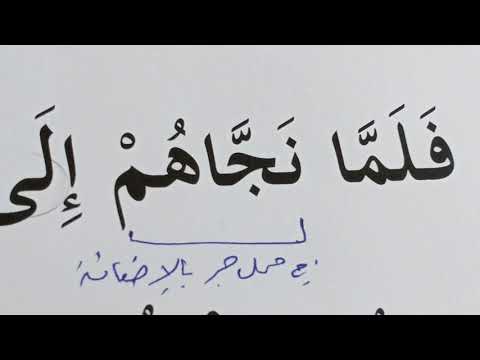 فَلَمَّا نَجَّاهُمْ إِلَى
في محل جر بالإضافة